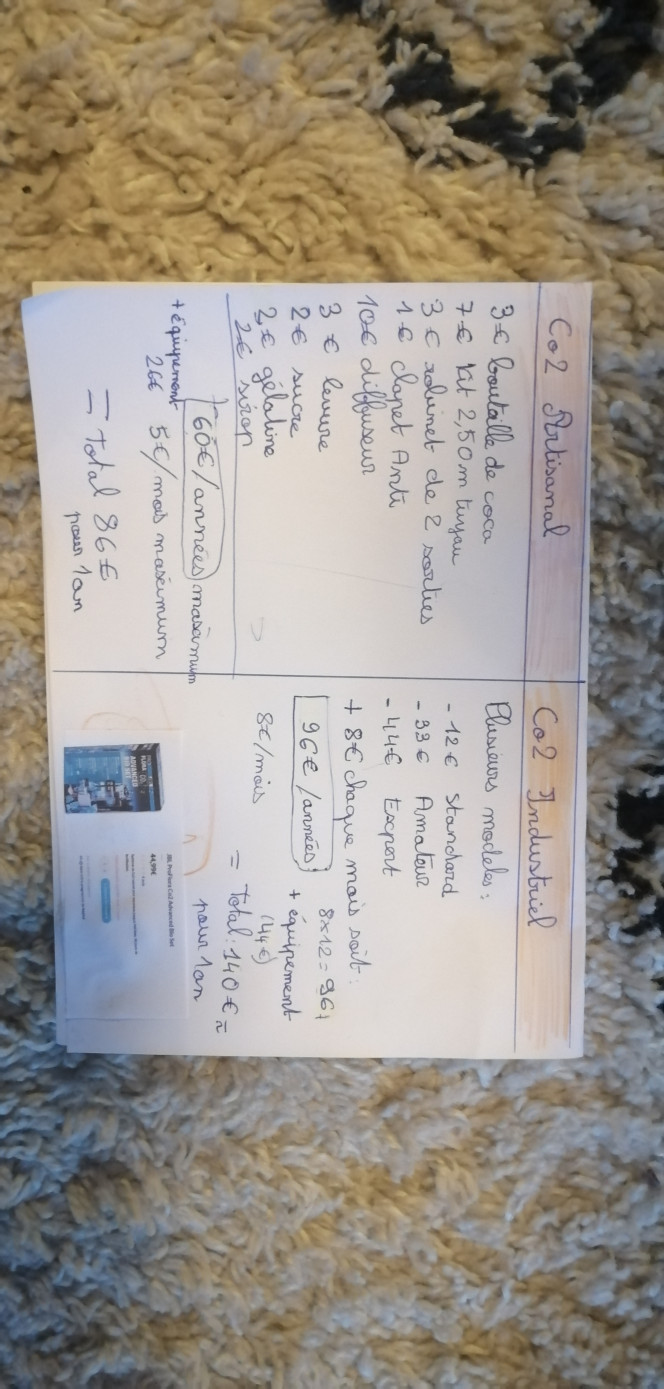 Co2 Artisanal
3€ bouteille de coca
7€ kit 2,50m tuyau
3€ robinet de 2 sorties
1€ clapet Anti
10€ diffuseur
3€ levure
2€ sucre
2€ gélatine
2€ sirop
60€/années maximum
5€/mois maximum
+ équipement
26€
= Total 86€
pour 1 an
Co2 Industriel
Plusieurs modeles:
- 12€ Standard
- 33€ Amateur
- 44€ Expert
+ 8€ chaque mois soit:
8x12=96+
96€/années
+ équipement
(44€)
8€/mois
= Total: 140€ ≈
pour 1 an
JBL ProFlora Co2 Advanced Bio Set
44,99€
ADVANCED
BIO SET